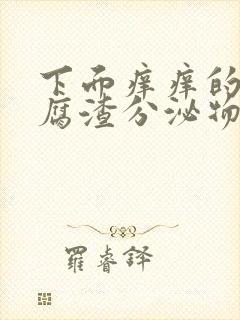 下面痒痒的
腐渣分泌物
羅睿鐸